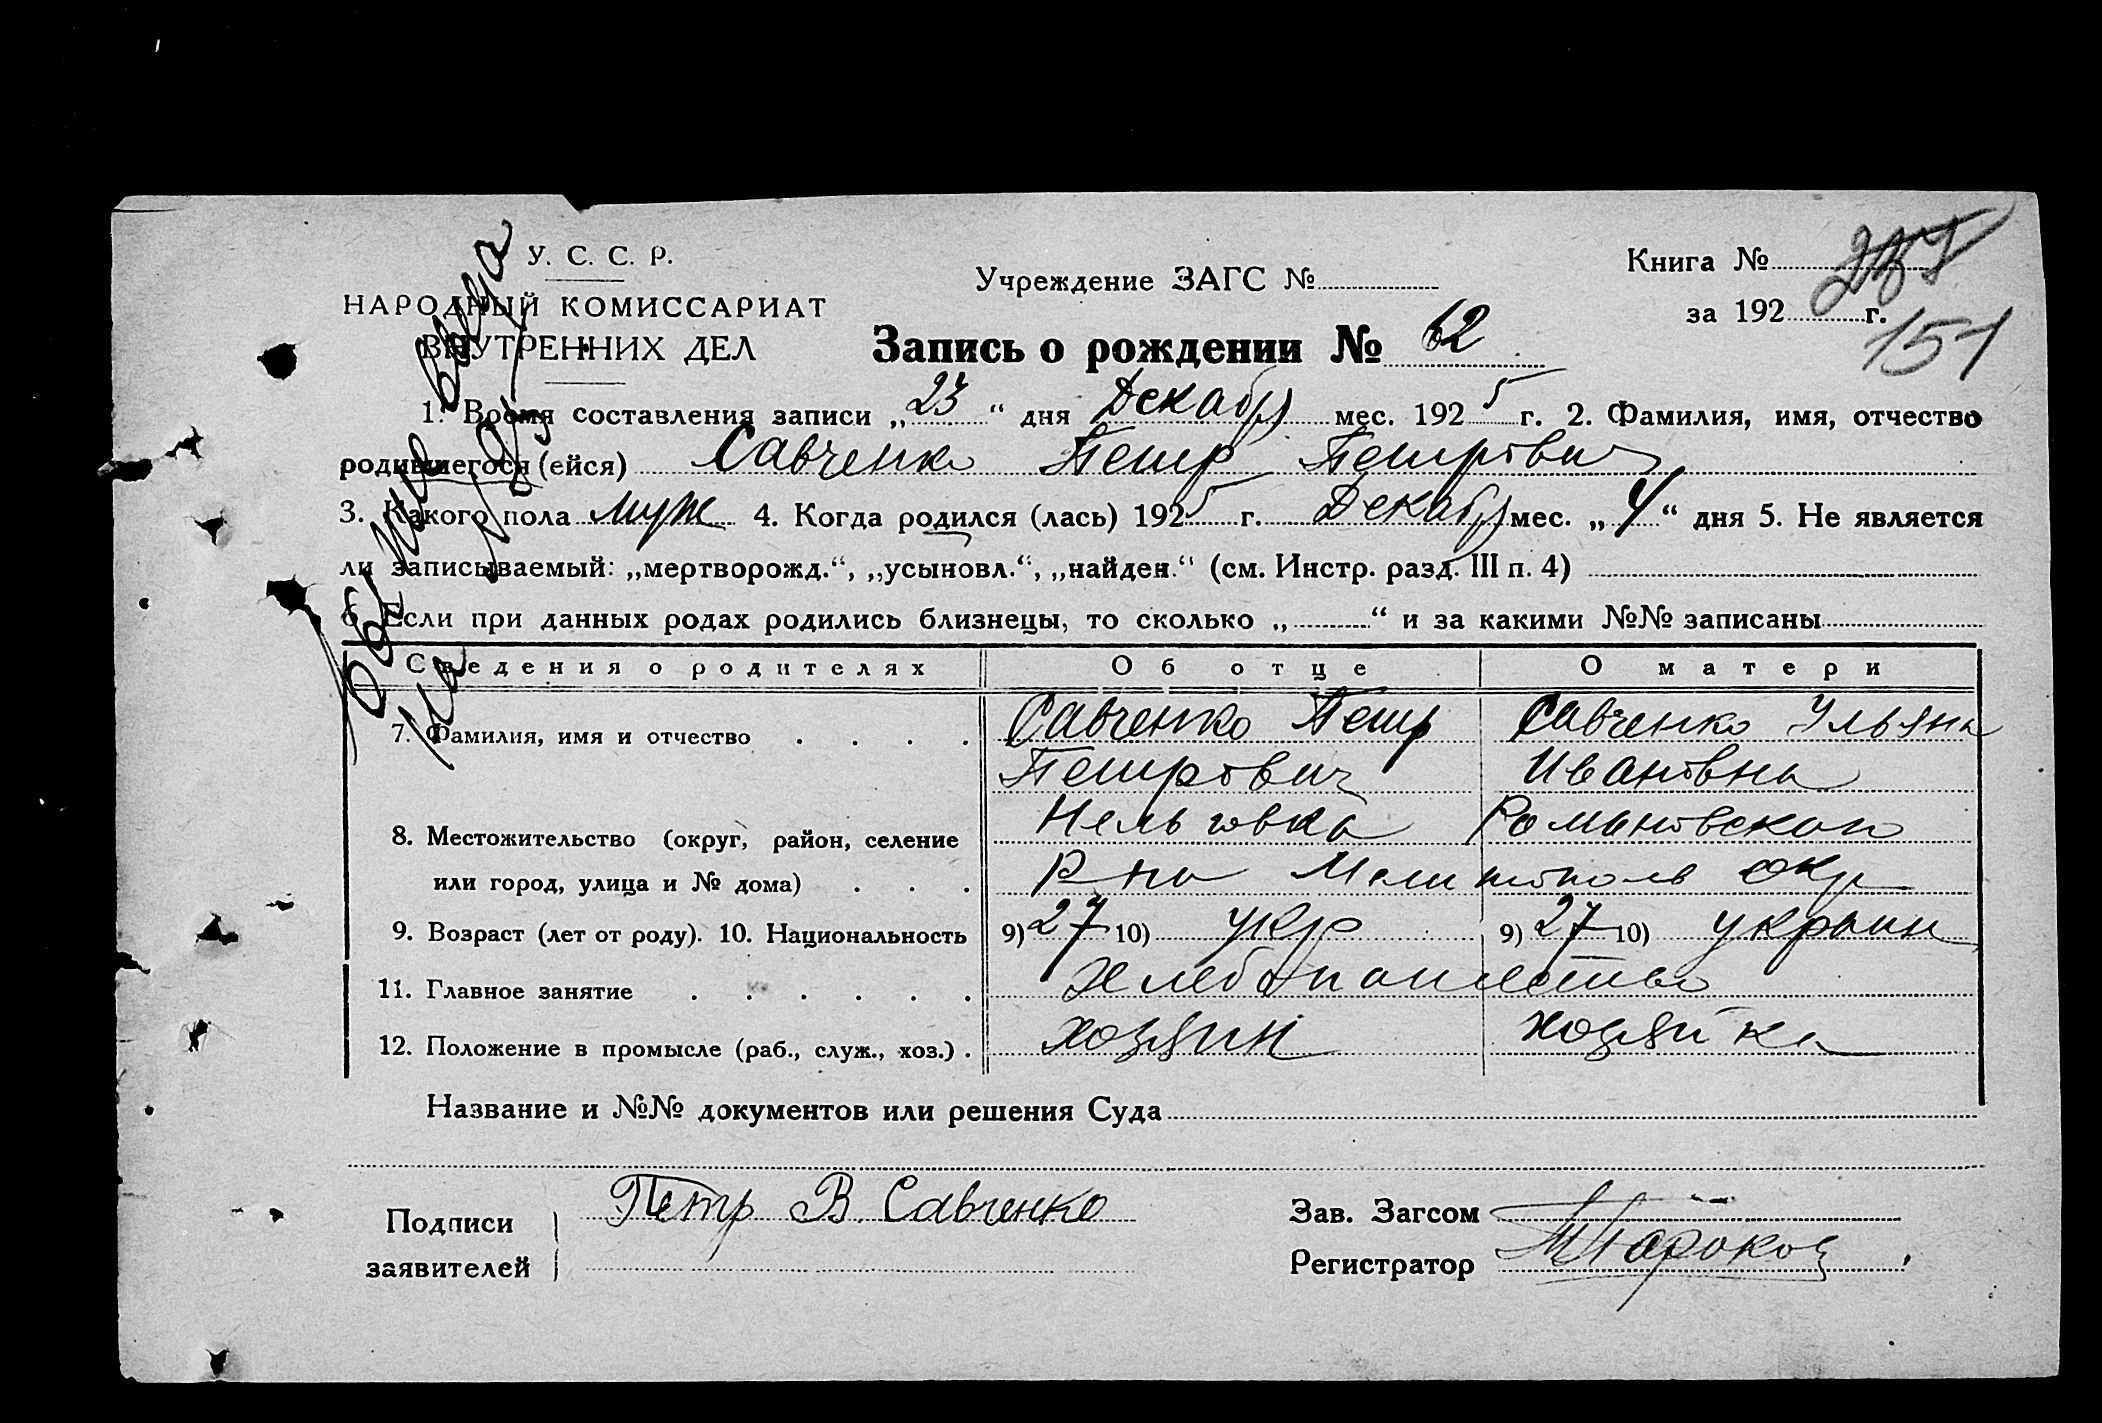 У. С. С. Р.
НАРОДНЫЙ КОМИССАРИАТ
ВНУТРЕННИХ ДЕЛ
Учреждение ЗАГС №
Книга №
за 192 г.
151
Запись о рождении № 62
1. Время составления записи „23“ дня Декабр мес. 1925 г. 2. Фамилия, имя, отчество
родившегося (ейся) Савченко Петр Петрович
3. Какого пола муж 4. Когда родился (лась) 1925 г. Декабр мес. „4“ дня 5. Не является
ли записываемый: „мертворожд.“, „усыновл.“, „найден.“ (см. Инстр. разд. III п. 4)
6. Если при данных родах родились близнецы, то сколько „ “ и за какими №№ записаны
Сведения о родителях Об отце О матери
7. Фамилия, имя и отчество Савченко Петр Савченко Ульяна
Петрович Ивановна
8. Местожительство (округ, район, селение Нельговка Романовского
или город, улица и № дома) Р-на Мелитополь окр
9. Возраст (лет от роду). 10. Национальность 9) 27 10) укр 9) 27 10) украин
11. Главное занятие Хлебопашество
12. Положение в промысле (раб., служ., хоз.) хозяин хозяйка
Название и №№ документов или решения Суда
Подписи Петр В. Савченко
заявителей
Зав. Загсом
Регистратор